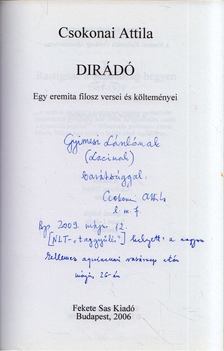 Csokonai Attila
DIRÁDÓ
Egy eremita filosz versei és költeményei
Gyimesi Lászlónak
(Lacinak)
barátsággal.
Csokonai Attila
Bp. 2009. május 12
[NLT-"taggyűlés"] helyett: a nagyon
kellemes aquincumi vasárnap után
május 25-én
Fekete Sas Kiadó
Budapest, 2006